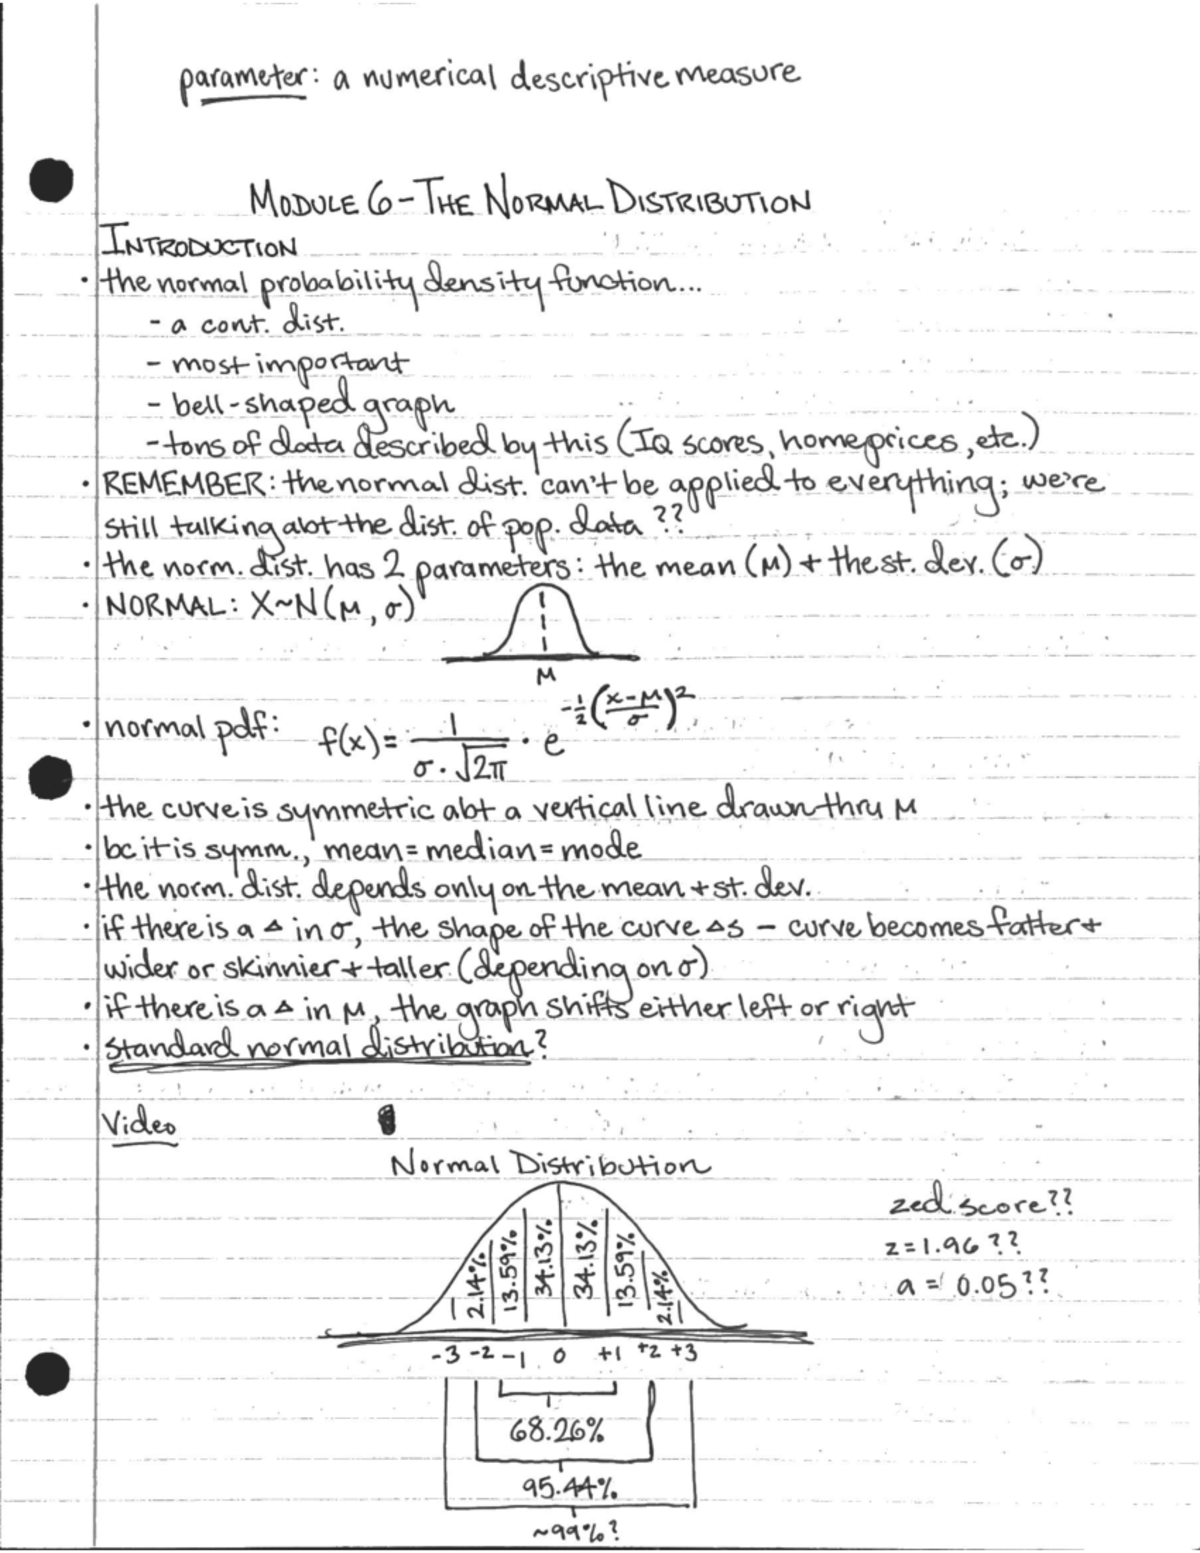 parameter: a numerical descriptive measure
MODULE 6 - THE NORMAL DISTRIBUTION
INTRODUCTION
• the normal probability density function...
- a cont. dist.
- most important
- bell-shaped graph
- tons of data described by this (IQ scores, home prices, etc.)
• REMEMBER: the normal dist. can't be applied to everything; we're
still talking abt the dist. of pop. data ??
• the norm. dist. has 2 parameters: the mean (μ) + the st. dev. (σ)
• NORMAL: X~N(μ, σ)
μ
• normal pdf: f(x) = 1/(σ·√2π) · e^(-½((x-μ)/σ)²)
• the curve is symmetric abt a vertical line drawn thru μ
• bc it is symm., mean = median = mode
• the norm. dist. depends only on the mean + st. dev.
• if there is a Δ in σ, the shape of the curve Δs - curve becomes fatter +
wider or skinnier + taller (depending on σ)
• if there is a Δ in μ, the graph shifts either left or right
• standard normal distribution?
Video
Normal Distribution
2.14% 13.59% 34.13% 34.13% 13.59% 2.14%
-3 -2 -1 0 +1 +2 +3
68.26%
95.44%
~99%?
zed score??
z=1.96??
a = 0.05??